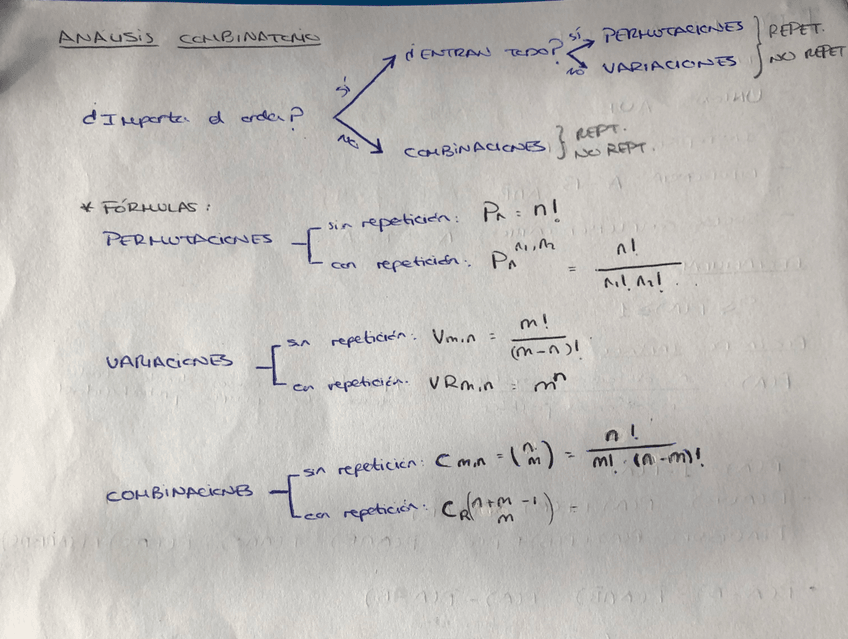 ANALISIS COMBINATORIO
¿Importa el orden?
sí
¿ENTRAN TODO?
sí
PERMUTACIONES
no
VARIACIONES
} REPET.
NO REPET
no
COMBINACIONES } REPT.
NO REPT.
* FÓRMULAS:
PERMUTACIONES
sin repetición: Pₙ = n!
con repetición: Pₙ^{n₁,n₂} = n! / (n₁! n₂! ..)
VARIACIONES
sin repetición: Vm,n = m! / (m-n)!
con repetición: VRm,n = mⁿ
COMBINACIONES
sin repetición: Cm,n = (n m) = n! / (m! · (n-m)!)
con repetición: C_R (n+m-1 m) =